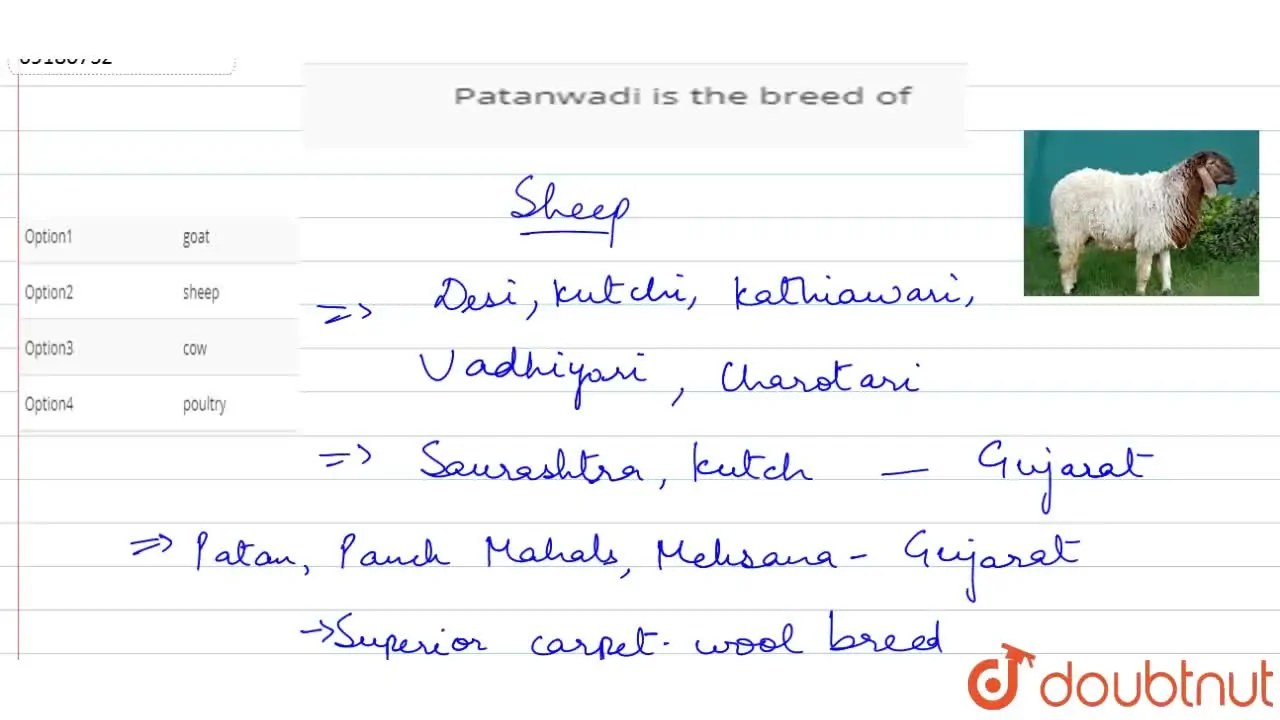 Patanwadi is the breed of
Sheep
Option1 goat
Option2 sheep
Option3 cow
Option4 poultry
=> Desi, Kutchi, Kathiawari,
Vadhiyari, Charotari
=> Saurashtra, Kutch — Gujarat
=> Patan, Panch Mahals, Mehsana - Gujarat
→ Superior carpet-wool breed
doubtnut